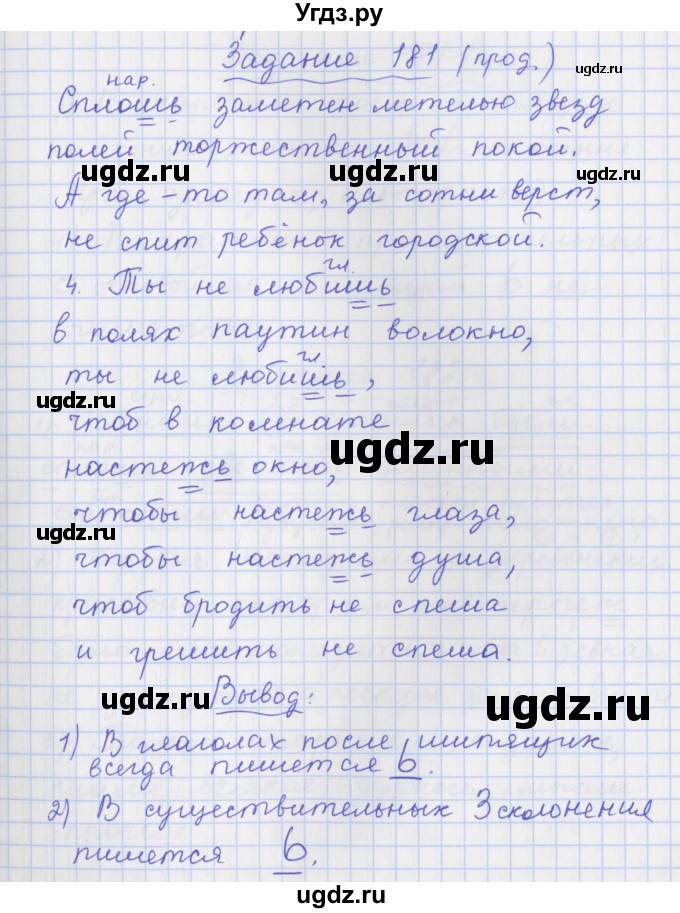 Угдз.ру
Задание 181 (прод.)
ugdz.ru
нар.
Сплошь заметен метелью звезд
полей торжественный покой.
ugdz.ru ugdz.ru ugdz.ru
А где-то там, за сотни верст,
не спит ребёнок городской.
ugdz.ru
гл.
4. Ты не любишь
в полях паутин волокно,
гл.
ты не любишь,
ugdz.ru
чтоб в комнате
ugdz.ru
настежь окно,
чтобы настежь глаза,
ugdz.ru
чтобы настежь душа,
чтоб бродить не спеша
и грешить не спеша.
ugdz.ru
Вывод:
ugdz.ru
1) В глаголах после шипящих
всегда пишется ь.
2) В существительных 3 склонения
пишется ь.
ugdz.ru